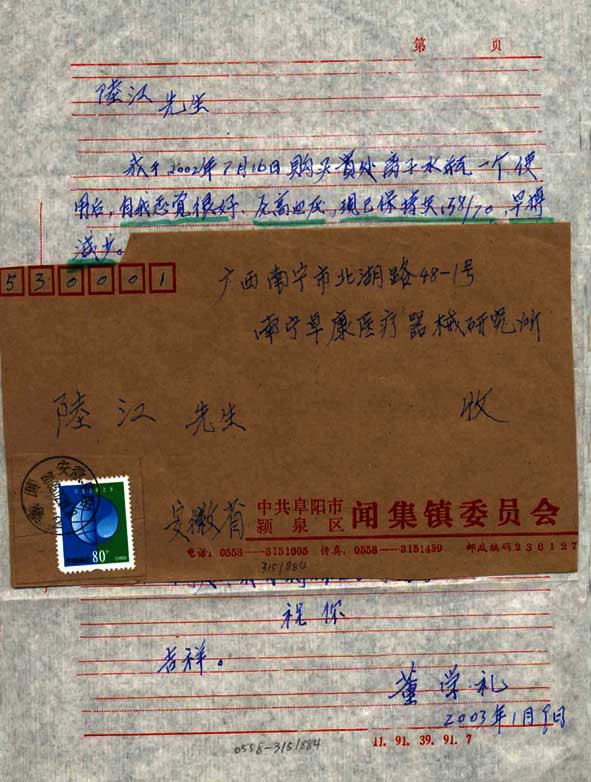 第 页
陸江 先生
我于2002年7月16日购买贵处离子水瓶一个使
用后,自我感觉很好,无高血压,现已保持 158/70,
减少。
530001
广西南宁市北湖路48-1号
南宁阜康医疗器械研究所
陸江 先生 收
安徽
80分
CHINA
安徽省 中共阜阳市颍泉区 闻集镇委员会
电话:0558—3151005 传真:0558—3151439 邮政编码236127
3151884
祝你
吉祥。
董学礼
2003年1月9日
0558-3151884
11.91.39.91.7